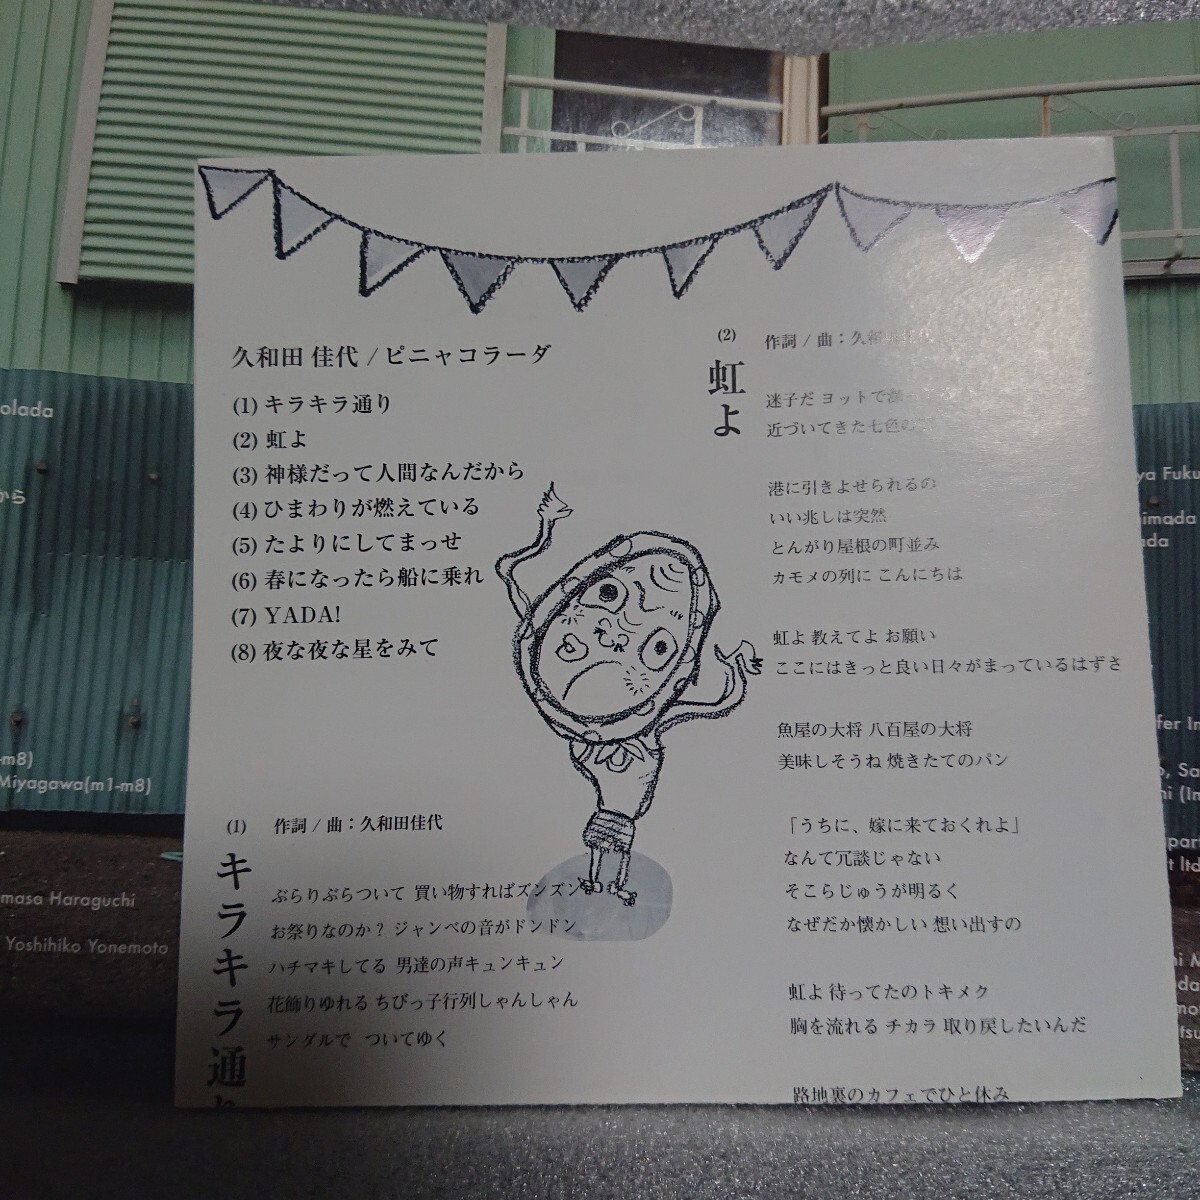 久和田 佳代 / ピニャコラーダ
(1) キラキラ通り
(2) 虹よ
(3) 神様だって人間なんだから
(4) ひまわりが燃えている
(5) たよりにしてまっせ
(6) 春になったら船に乗れ
(7) YADA!
(8) 夜な夜な星をみて
(1) 作詞 / 曲：久和田佳代
キラキラ通り
ぶらりぶらついて 買い物すればズンズン
お祭りなのか？ ジャンベの音がドンドン
ハチマキしてる 男達の声キュンキュン
花飾りゆれる ちびっ子行列しゃんしゃん
サンダルで ついてゆく
(2) 作詞 / 曲：久和田佳代
虹よ
迷子だ ヨットで漂
近づいてきた七色の
港に引きよせられるの
いい兆しは突然
とんがり屋根の町並み
カモメの列に こんにちは
虹よ 教えてよ お願い
ここにはきっと良い日々がまっているはずさ
魚屋の大将 八百屋の大将
美味しそうね 焼きたてのパン
「うちに、嫁に来ておくれよ」
なんて冗談じゃない
そこらじゅうが明るく
なぜだか懐かしい 想い出すの
虹よ 待ってたのトキメク
胸を流れる チカラ 取り戻したいんだ
路地裏のカフェでひと休み
olada
から
-m8)
Miyagawa(m1-m8)
masa Haraguchi
Yoshihiko Yonemoto
ya Fuku
himada
ada
fer In
o, Sa
hi (In
part
t ltd
hi M
oda
mo
tsu